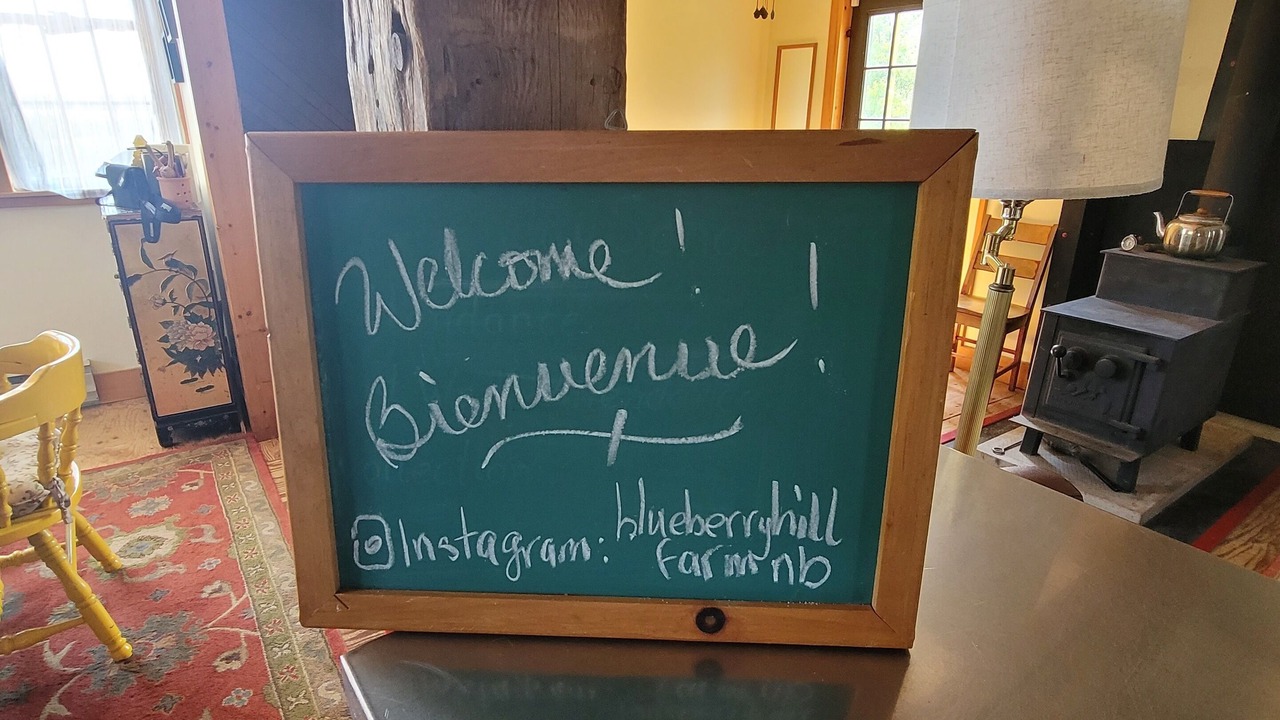 Welcome!
Bienvenue!
Instagram: blueberryhill
farmnb